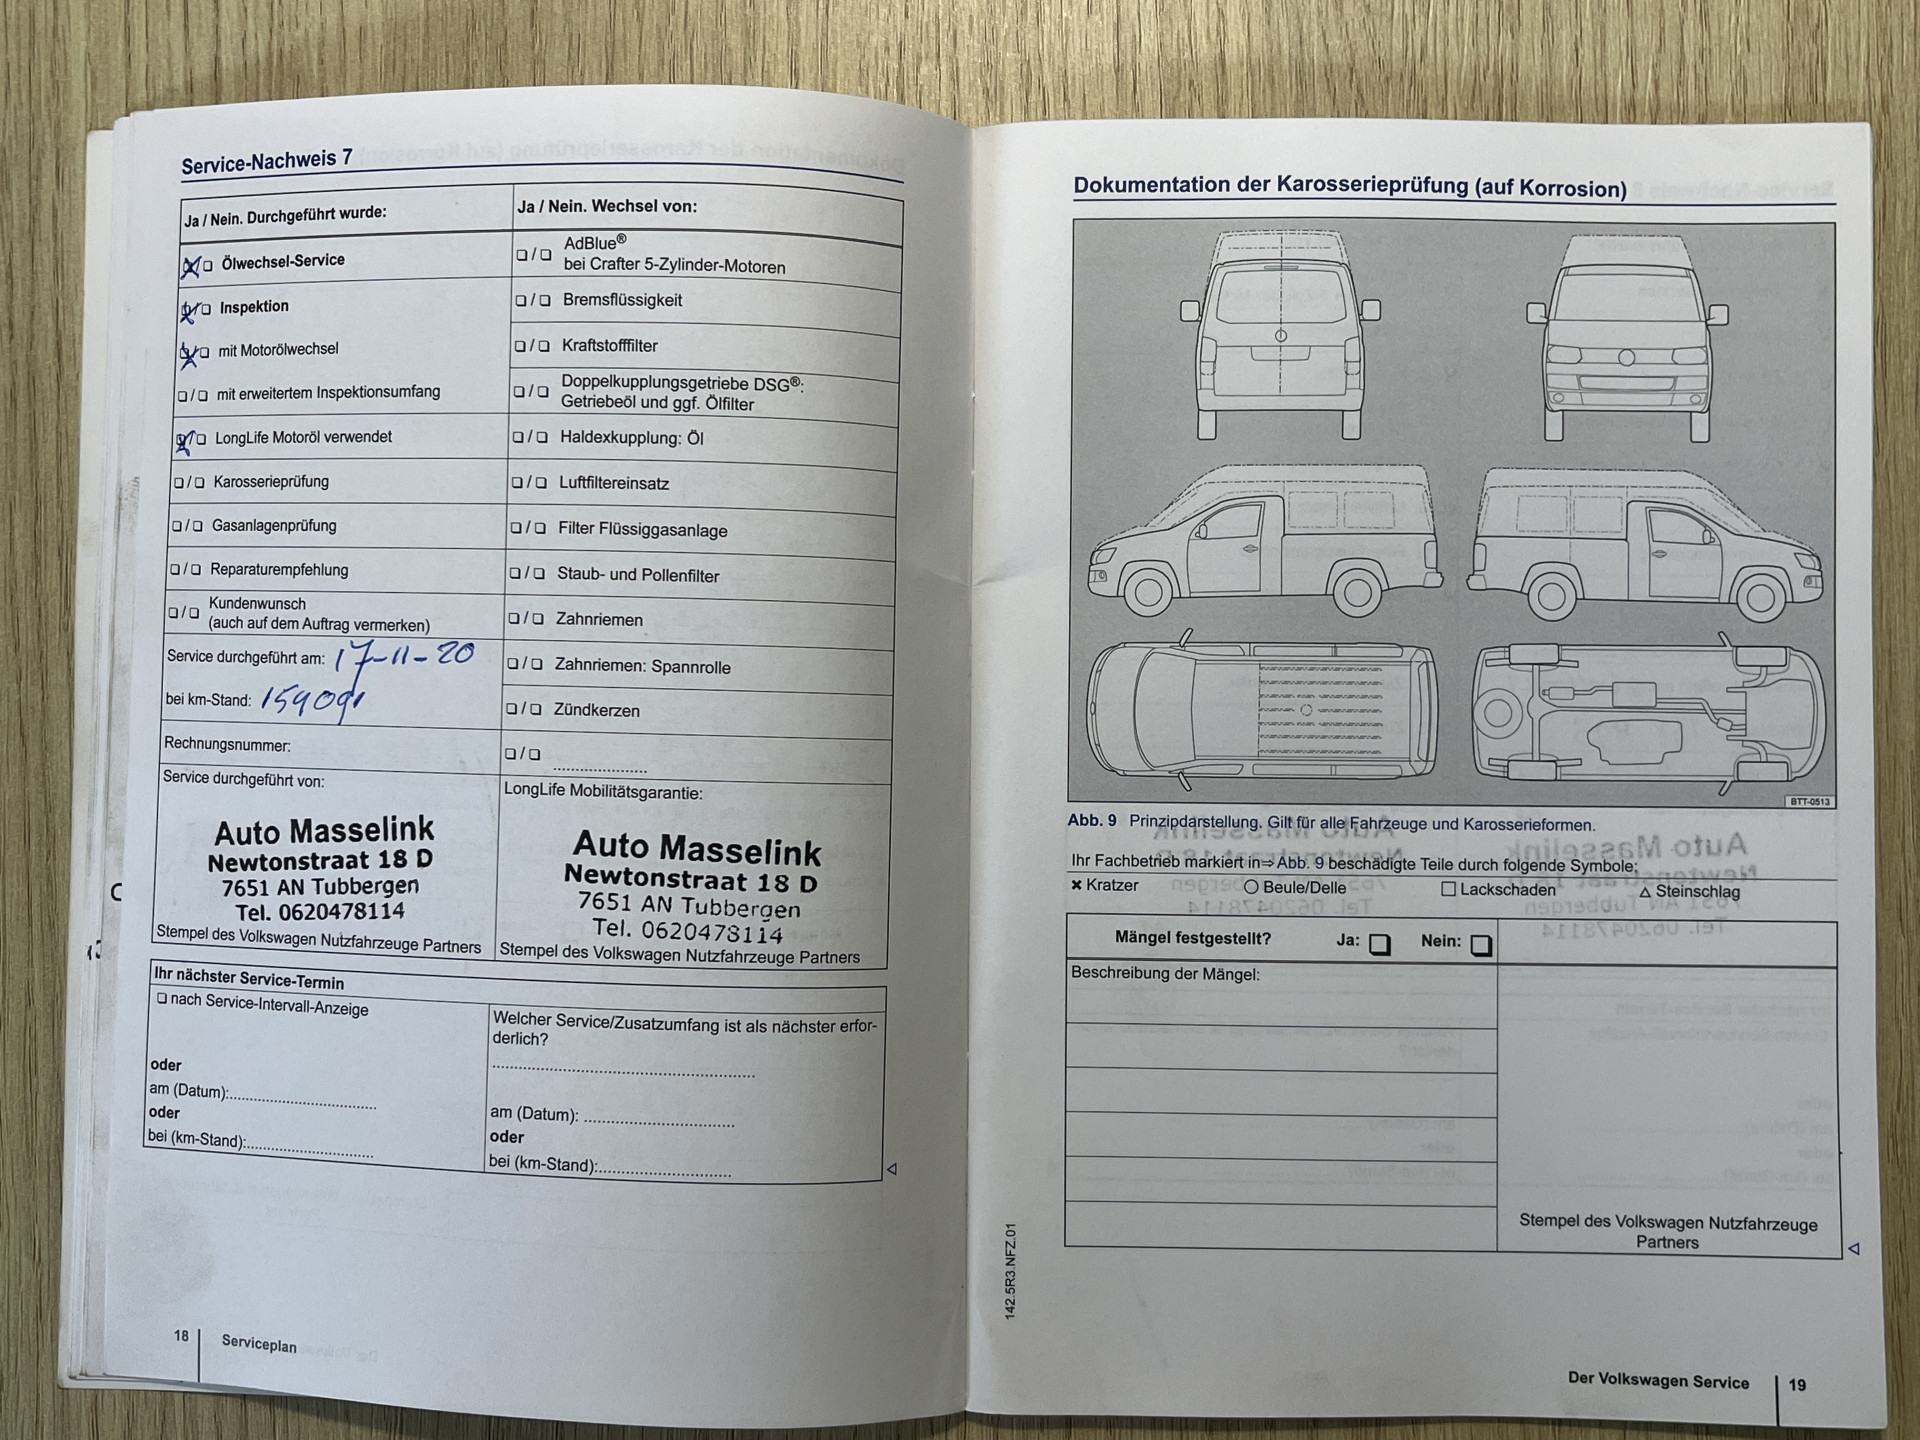 Service-Nachweis 7
Ja / Nein. Durchgeführt wurde:
Ölwechsel-Service
Inspektion
mit Motorölwechsel
❑ / ❑ mit erweitertem Inspektionsumfang
LongLife Motoröl verwendet
❑ / ❑ Karosserieprüfung
❑ / ❑ Gasanlagenprüfung
❑ / ❑ Reparaturempfehlung
❑ / ❑ Kundenwunsch
(auch auf dem Auftrag vermerken)
Service durchgeführt am: 17-11-20
bei km-Stand: 159091
Rechnungsnummer:
Service durchgeführt von:
Auto Masselink
Newtonstraat 18 D
7651 AN Tubbergen
Tel. 0620478114
Stempel des Volkswagen Nutzfahrzeuge Partners
Ja / Nein. Wechsel von:
❑ / ❑ AdBlue®
bei Crafter 5-Zylinder-Motoren
❑ / ❑ Bremsflüssigkeit
❑ / ❑ Kraftstofffilter
❑ / ❑ Doppelkupplungsgetriebe DSG®:
Getriebeöl und ggf. Ölfilter
❑ / ❑ Haldexkupplung: Öl
❑ / ❑ Luftfiltereinsatz
❑ / ❑ Filter Flüssiggasanlage
❑ / ❑ Staub- und Pollenfilter
❑ / ❑ Zahnriemen
❑ / ❑ Zahnriemen: Spannrolle
❑ / ❑ Zündkerzen
❑ / ❑ ......................
LongLife Mobilitätsgarantie:
Auto Masselink
Newtonstraat 18 D
7651 AN Tubbergen
Tel. 0620478114
Stempel des Volkswagen Nutzfahrzeuge Partners
Ihr nächster Service-Termin
❑ nach Service-Intervall-Anzeige
oder
am (Datum):..............................
oder
bei (km-Stand):..........................
Welcher Service/Zusatzumfang ist als nächster erfor-
derlich?
......................................................
am (Datum): ..............................
oder
bei (km-Stand):...........................
18 Serviceplan
Dokumentation der Karosserieprüfung (auf Korrosion)
BTT-0513
Abb. 9 Prinzipdarstellung. Gilt für alle Fahrzeuge und Karosserieformen.
Ihr Fachbetrieb markiert in⇒Abb. 9 beschädigte Teile durch folgende Symbole:
× Kratzer ○ Beule/Delle □ Lackschaden △ Steinschlag
Mängel festgestellt? Ja: ❑ Nein: ❑
Beschreibung der Mängel:
Stempel des Volkswagen Nutzfahrzeuge
Partners
142.5R3.NFZ.01
Der Volkswagen Service 19